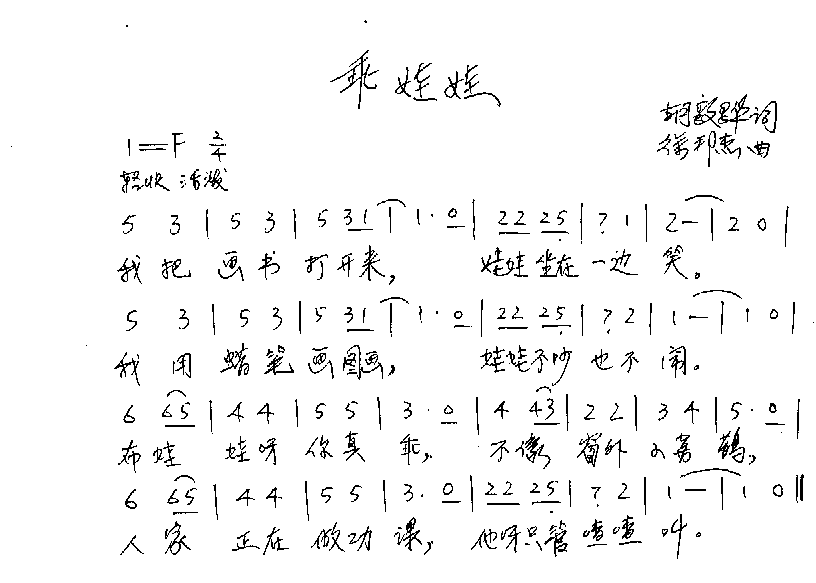 乖娃娃
胡敦骅词
徐邦杰曲
1=F 2/4
轻快 活泼
5 3 | 5 3 | 5 31 | 1· 0 | 22 25 | 7 1 | 2- | 2 0 |
我把画书打开来, 娃娃坐在一边笑。
5 3 | 5 3 | 5 31 | 1· 0 | 22 25 | 7 2 | 1- | 1 0 |
我用蜡笔画图画, 娃娃不吵也不闹。
6 65 | 4 4 | 5 5 | 3· 0 | 4 43 | 2 2 | 3 4 | 5· 0 |
布娃娃呀你真乖, 不像窗外小喜鹊,
6 65 | 4 4 | 5 5 | 3· 0 | 22 25 | 7 2 | 1- | 1 0 ‖
人家正在做功课, 他呀只管喳喳叫。